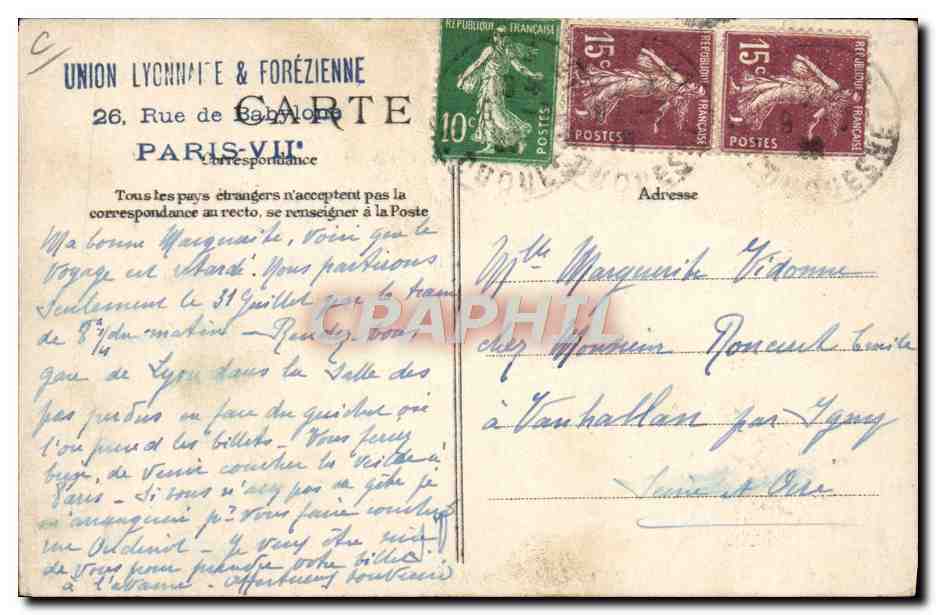 C
RÉPUBLIQUE FRANÇAISE
10c
POSTES
RÉPUBLIQUE FRANÇAISE
15c
POSTES
RÉPUBLIQUE FRANÇAISE
15c
POSTES
UNION LYONNAISE & FORÉZIENNE
26, Rue de Babylone
PARIS-VIIe
CARTE
Correspondance
Tous les pays étrangers n'acceptent pas la
correspondance au recto, se renseigner à la Poste
Adresse
Ma bonne Marguerite, voici que le
voyage est retardé. Nous partirons
seulement le 31 Juillet par le train
de 8h du matin - Rendez-vous
gare de Lyon dans la Salle des
pas perdus en face du guichet où
l'on prend les billets - Vous ferez
bien, de venir coucher la veille à
Paris - Si vous n'avez pas de gîte je
m'arrangerai pr vous faire coucher
rue Oudinot - Je veux être
de vous pour prendre votre billet
à l'avance - affectueux souvenir
Mlle Marguerite Vidonne
chez Monsieur Emile
à Vauhallan par Igny
Seine et Oise
CPAPHIL